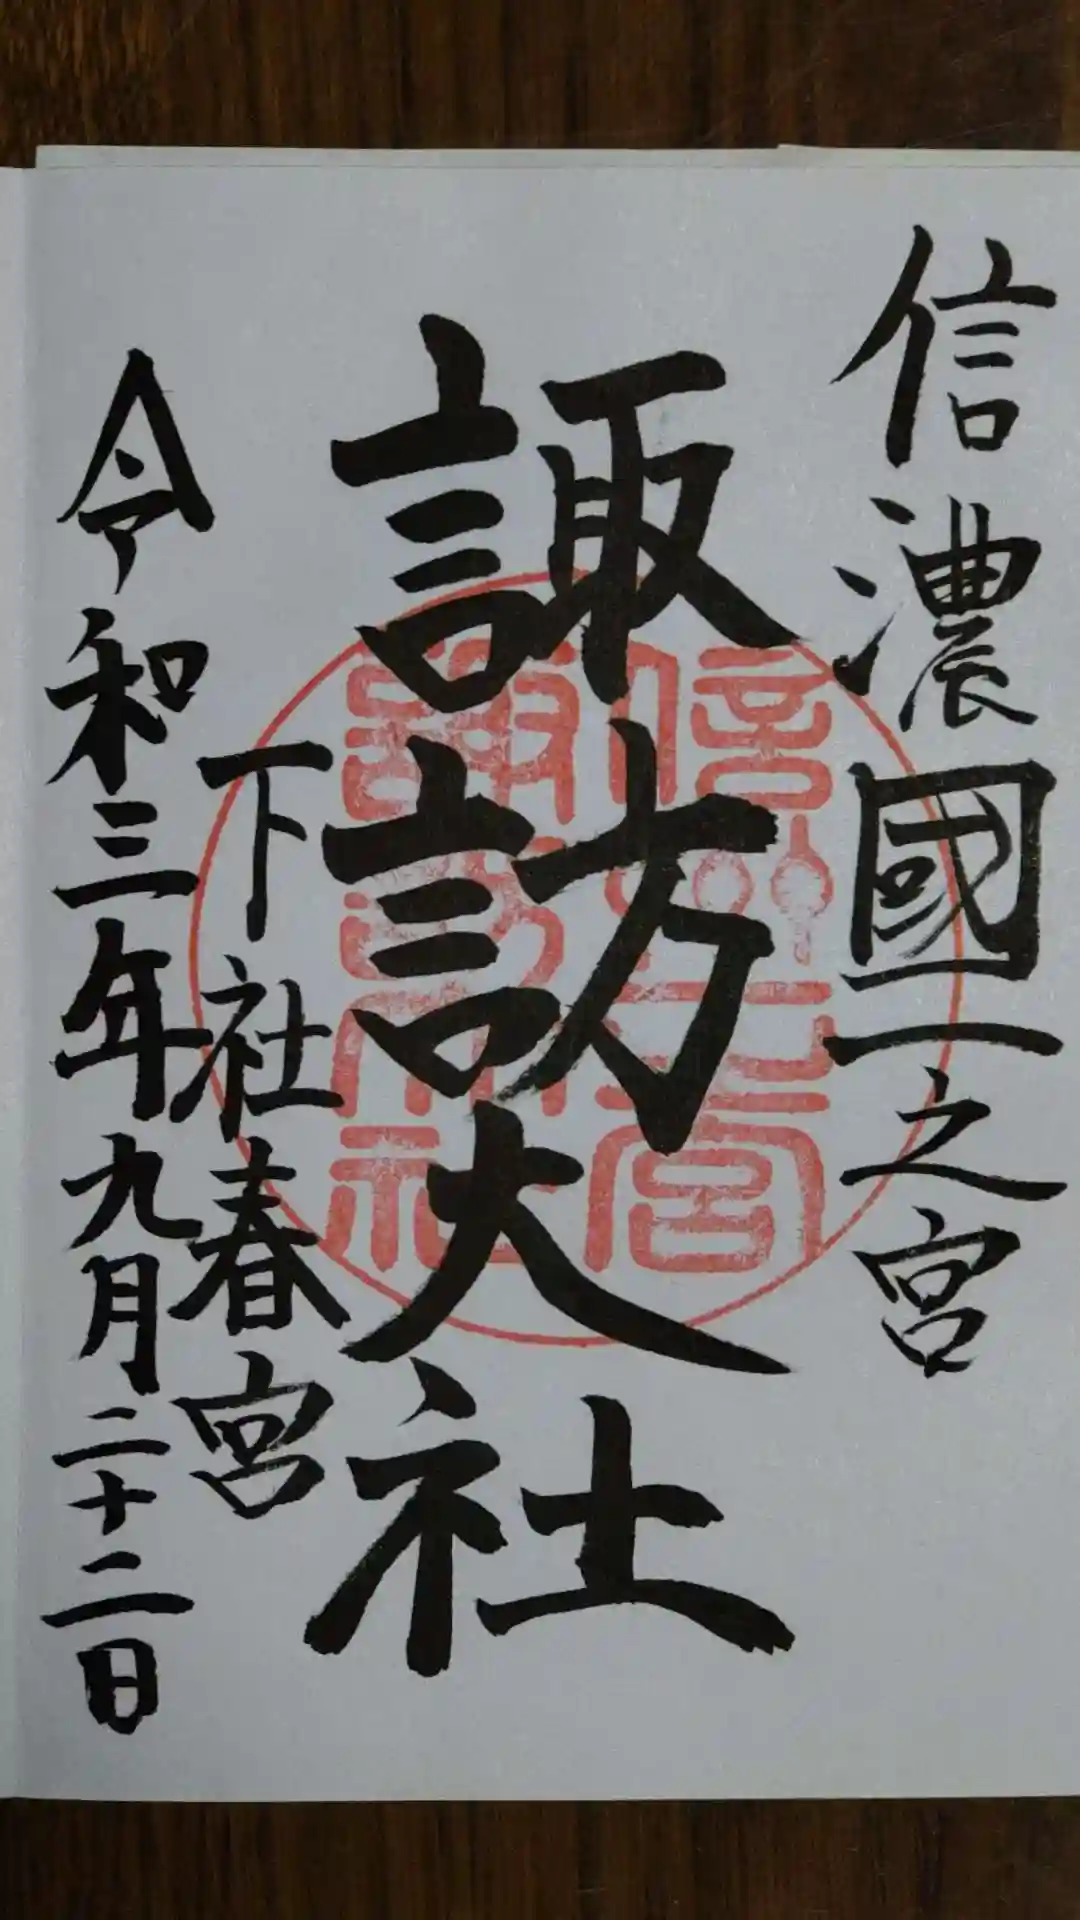 信濃國一之宮
諏訪大社
下社春宮
令和三年九月二十二日
信州一之宮
諏訪大社